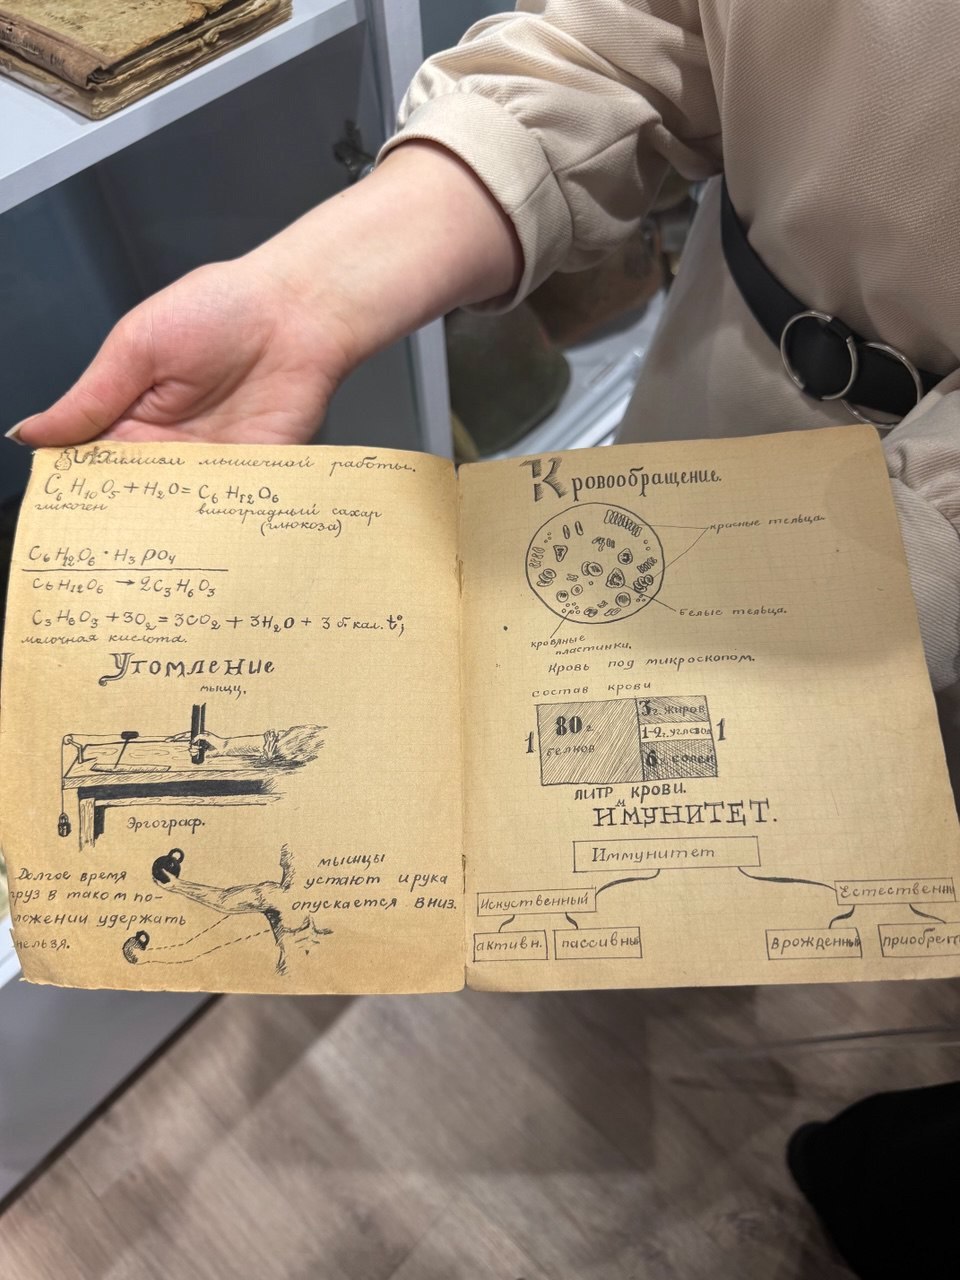 Химизм мышечной работы.
C₆H₁₀O₅ + H₂O = C₆H₁₂O₆
гликоген виноградный сахар
(глюкоза)
C₆H₁₂O₆ · H₃PO₄
C₆H₁₂O₆ → 2C₃H₆O₃
C₃H₆O₃ + 3O₂ = 3CO₂ + 3H₂O + 3 б. кал. t°;
молочная кислота.
Утомление
мышц.
Эргограф.
Долгое время
груз в таком по-
ложении удержать
нельзя.
мышцы
устают и рука
опускается вниз.
Кровообращение.
красные тельца.
белые тельца.
кровяные
пластинки.
Кровь под микроскопом.
состав крови
80 г.
белков
3 г. жиров
1-2 г. углевод
6 г. солей
1 1
литр крови.
ИмМУНИТЕТ.
Иммунитет
Искуственный
Естественн
активн.
пассивный
врожденный
приобрет